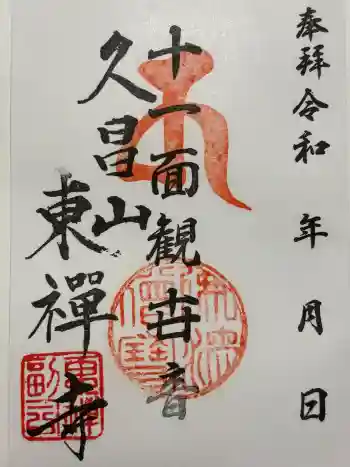 奉拝令和 年 月 日
十一面観世音
久昌山
東禅寺